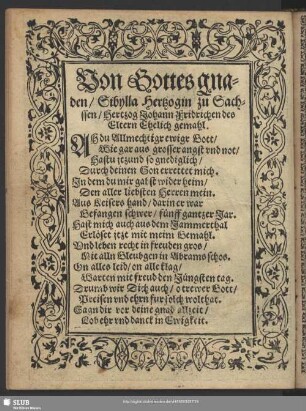 Von Gottes gna-
den / Sibylla Hertzogin zu Sach-
ssen / Hertzog Johann Fridrichen des
Eltern Ehelich gemahl.
ACh du Allmechtiger ewiger Gott /
Wie gar aus grosser angst vnd not /
Hastu itzund so gnediglich /
Durch deinen Son errettet mich.
In dem du mir gabst wider heim /
Den aller liebsten Herren mein.
Aus Keisers hand / darin er war
Gefangen schwer / fünff gantzer Jar.
Hast mich auch aus dem Jammerthal
Erlöset itzt mit mein Gemahl.
Vnd leben recht in freuden gros /
Mit alln Gleubgen in Abrams schos.
On alles leid / on alle klag /
Warten mit freud den Jüngsten tag.
Drumb wir Dich auch / o trewer Gott /
Preisen vnd ehrn fur solch wolthat.
Sagn dir vor deine gnad allzeit /
Lob ehr vnd danck in Ewigkeit.
SLUB